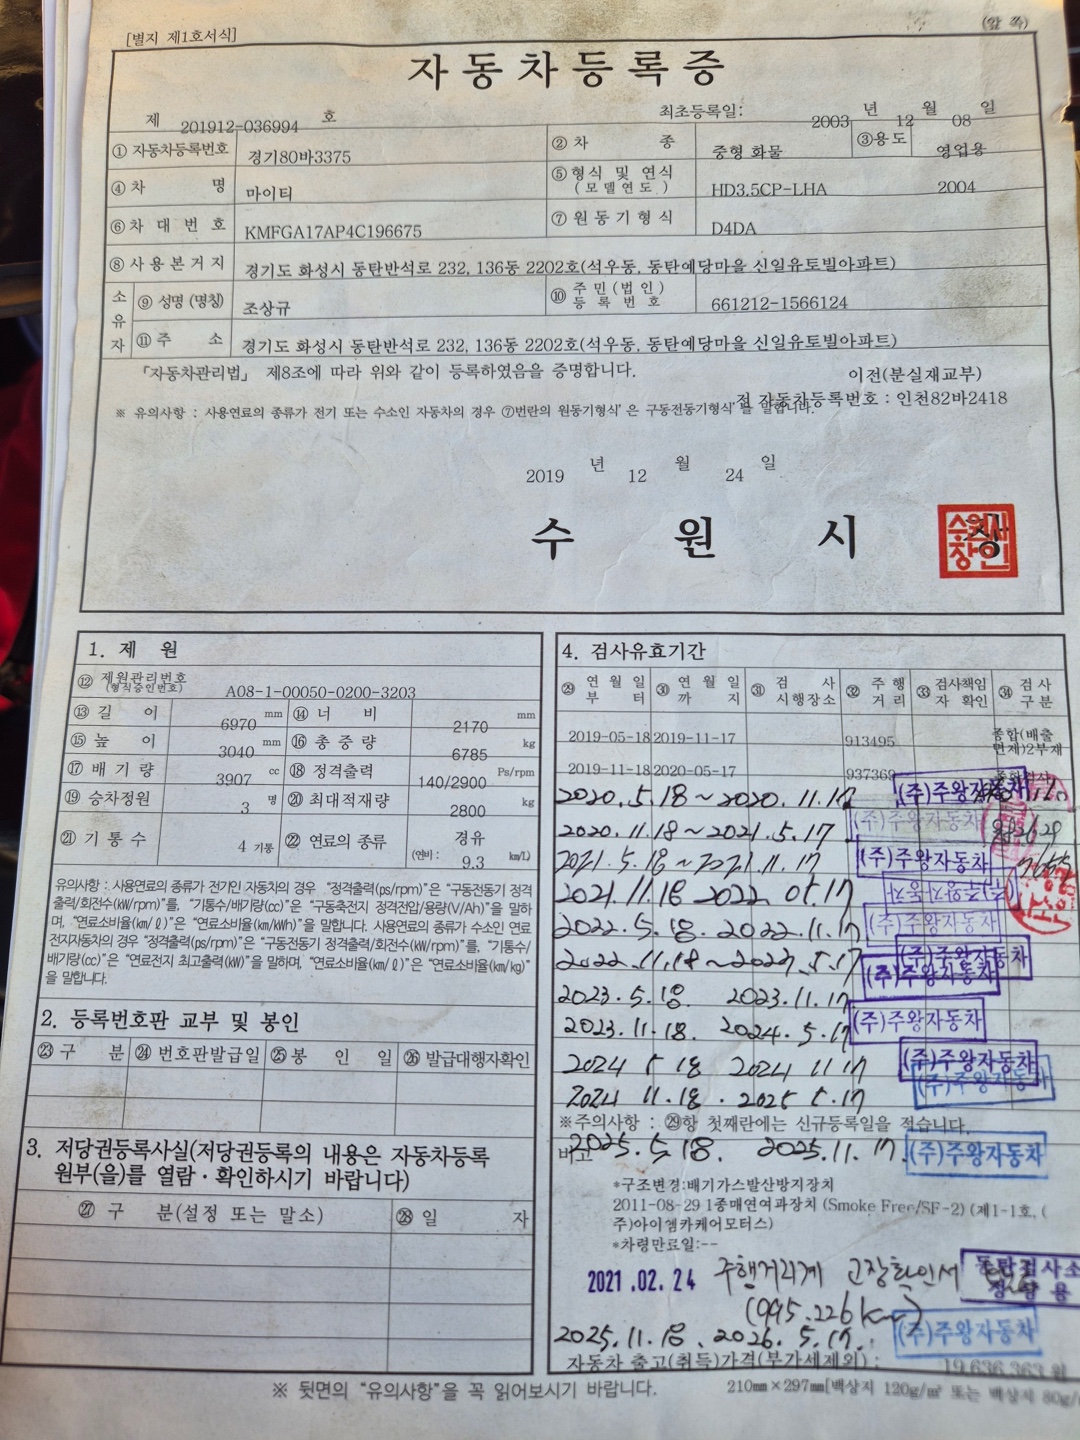 [별지 제1호서식]
(앞 쪽)
자동차등록증
제 201912-036994 호
최초등록일: 2003 년 12 월 08 일
① 자동차등록번호 경기80바3375 ② 차 종 중형 화물 ③용도 영업용
④ 차 명 마이티 ⑤ 형식 및 연식 (모델연도) HD3.5CP-LHA 2004
⑥ 차 대 번 호 KMFGA17AP4C196675 ⑦ 원동기형식 D4DA
⑧ 사용본거지 경기도 화성시 동탄반석로 232, 136동 2202호(석우동, 동탄예당마을 신일유토빌아파트)
소유자 ⑨ 성명(명칭) 조상규 ⑩ 주민(법인)등록번호 661212-1566124
⑪ 주 소 경기도 화성시 동탄반석로 232, 136동 2202호(석우동, 동탄예당마을 신일유토빌아파트)
「자동차관리법」 제8조에 따라 위와 같이 등록하였음을 증명합니다.
이전(분실재교부)
전 자동차등록번호 : 인천82바2418
※ 유의사항 : 사용연료의 종류가 전기 또는 수소인 자동차의 경우 ⑦번란의 원동기형식' 은 구동전동기형식' 을 말합니다.
2019 년 12 월 24 일
수 원 시 장
수원시장인
1. 제 원
⑫ 제원관리번호 (형식승인번호) A08-1-00050-0200-3203
⑬ 길 이 6970 mm ⑭ 너 비 2170 mm
⑮ 높 이 3040 mm ⑯ 총 중 량 6785 kg
⑰ 배 기 량 3907 cc ⑱ 정격출력 140/2900 Ps/rpm
⑲ 승차정원 3 명 ⑳ 최대적재량 2800 kg
㉑ 기 통 수 4 기통 ㉒ 연료의 종류 경유 (연비 : 9.3 km/L)
유의사항 : 사용연료의 종류가 전기인 자동차의 경우 "정격출력(ps/rpm)"은 "구동전동기 정격
출력/회전수(kW/rpm)"를, "기통수/배기량(cc)"은 "구동축전지 정격전압/용량(V/Ah)"을 말하
며, "연료소비율(km/ℓ)"은 "연료소비율(km/kWh)"을 말합니다. 사용연료의 종류가 수소인 연료
전지자동차의 경우 "정격출력(ps/rpm)"은 "구동전동기 정격출력/회전수(kW/rpm)"를, "기통수/
배기량(cc)"은 "연료전지 최고출력(kW)"을 말하며, "연료소비율(km/ℓ)"은 "연료소비율(km/kg)"
을 말합니다.
2. 등록번호판 교부 및 봉인
㉓ 구 분 ㉔ 번호판발급일 ㉕ 봉 인 일 ㉖ 발급대행자확인
3. 저당권등록사실(저당권등록의 내용은 자동차등록
원부(을)를 열람ㆍ확인하시기 바랍니다)
㉗ 구 분(설정 또는 말소) ㉘ 일 자
4. 검사유효기간
㉙ 연 월 일 부 터 ㉚ 연 월 일 까 지 ㉛ 검 사 시행장소 ㉜ 주 행 거 리 ㉝ 검사책임자 확인 ㉞ 검 사 구 분
2019-05-18 2019-11-17 913495 종합(배출면제)2부재
2019-11-18 2020-05-17 937369 종합검사
2020.5.18~2020.11.17 (주)주왕자동차
2020.11.18~2021.5.17 (주)주왕자동차
2021.5.18~2021.11.17 (주)주왕자동차
2021.11.18 2022.05.17 (주)주왕자동차
2022.5.18. 2022.11.17 (주)주왕자동차
2022.11.18~2023.5.17 (주)주왕자동차
2023.5.18. 2023.11.17 (주)주왕자동차
2023.11.18. 2024.5.17 (주)주왕자동차
2024 5 18 2024 11 17 (주)주왕자동차
2024 11.18. 2025 5.17 (주)주왕자동차
※주의사항 : ㉙항 첫째란에는 신규등록일을 적습니다.
비고
2025.5.18. 2025.11.17 (주)주왕자동차
*구조변경:배기가스발산방지장치
2011-08-29 1종매연여과장치 (Smoke Free/SF-2) (제1-1호, (
주)아이엠카케어모터스)
*차령만료일:--
2021.02.24 주행거리계 고장확인서
동탄검사소
(995.226km)
2025.11.18. 2026.5.17. (주)주왕자동차
자동차 출고(취득)가격(부가세제외) : 19,636,363 원
※ 뒷면의 "유의사항"을 꼭 읽어보시기 바랍니다.
210㎜×297㎜[백상지 120g/㎡ 또는 백상지 80g/